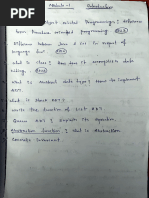 Module-1 Introduction
What is Object oriented Programming? Difference
from Procedure oriented programming
Difference between Java & C++ in respect of
language func
What is Class? How does it accomplish data
hiding
What is Abstract data type? How to implement
ADT.
What is Stack ADT?
Write the function of List ADT?
Queue ADT? Explain its operation.
Abstraction function? What is Abstraction
Concrete Invariant